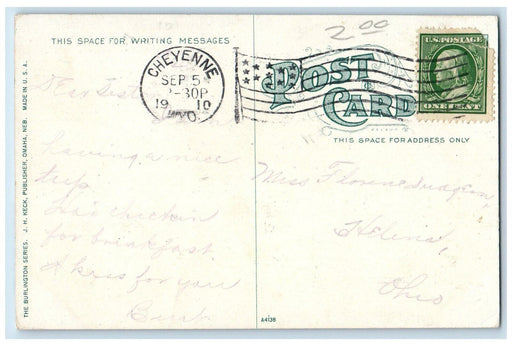 2.00
THIS SPACE FOR WRITING MESSAGES
CHEYENNE
SEP 5
-30P
1910
WYO.
POST
CARD
U.S. POSTAGE
ONE CENT
THIS SPACE FOR ADDRESS ONLY
having a nice
trip.
Had chicken
for breakfast.
A kiss for you
Miss Florence
Helena,
Ohio
THE BURLINGTON SERIES. J. H. KECK, PUBLISHER, OMAHA, NEB. MADE IN U.S.A.
A4138